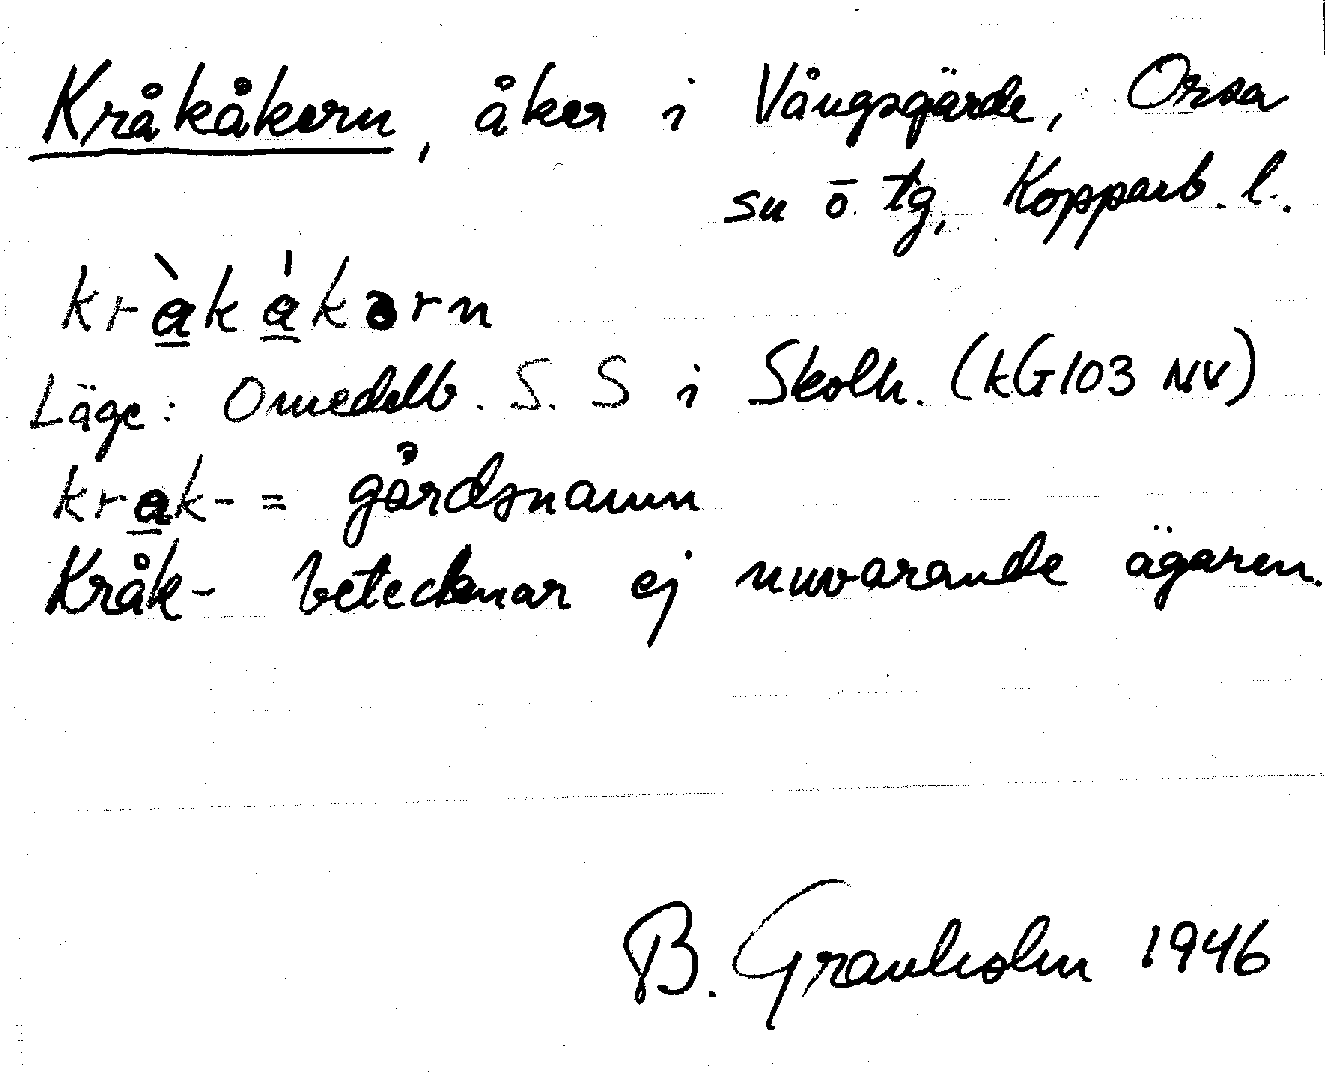 Kråkåkern, åker i Vångsgärde, Orsa
sn o. tg, Kopparb. l.
kràkákərn
Läge: Omedelb. S. S i Skolh. (kG103 NV)
krak- = gårdsnamn
Kråk- betecknar ej nuvarande ägaren.
B. Granholm 1946